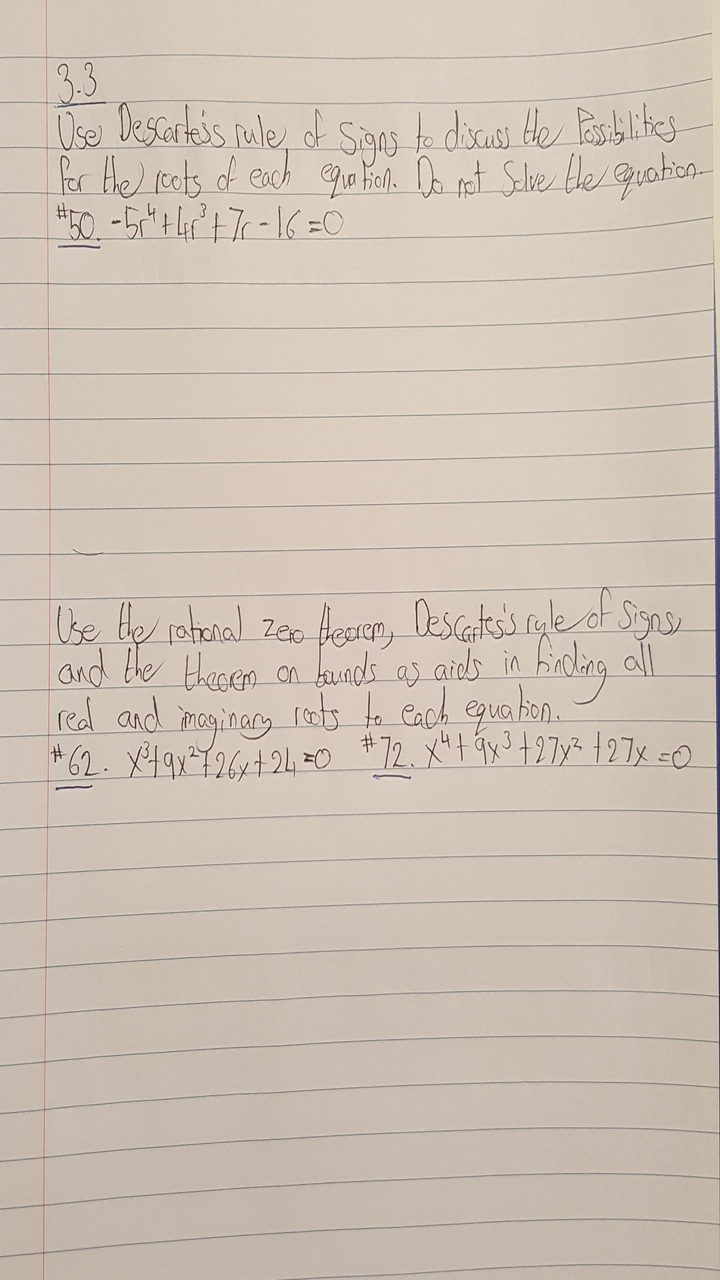 3.3
Use Descartes's rule of signs to discuss the Possibilities
for the roots of each equation. Do not Solve the equation.
#50. -5r⁴+4r³+7r-16=0
Use the rational zero theorem, Descartes's rule of signs,
and the theorem on bounds as aids in finding all
real and imaginary roots to each equation.
#62. x³+9x²+26x+24=0 #72. x⁴+9x³+27x²+27x=0